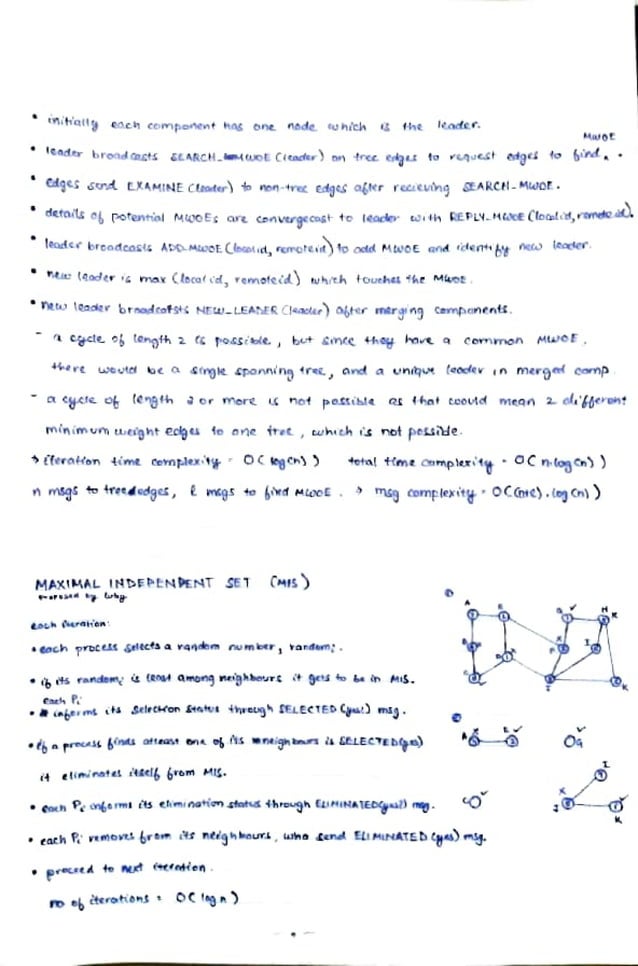 • initially each component has one node which is the leader.
MWOE
• leader broadcasts SEARCH_MWOE (leader) on tree edges to request edges to find ^ .
• edges send EXAMINE (leader) to non-tree edges after recieving SEARCH-MWOE.
• details of potential MWOEs are convergecast to leader with REPLY-MWOE (localid, remoteid).
• leader broadcasts ADD-MWOE (localid, remoteid) to add MWOE and identify new leader.
• new leader is max (localid, remoteid) which touches the MWOE.
• new leader broadcasts NEW_LEADER (leader) after merging components.
- a cycle of length 2 is possible, but since they have a common MWOE,
there would be a single spanning tree, and a unique leader in merged comp.
- a cycle of length 3 or more is not possible as that would mean 2 different
minimum weight edges to one tree, which is not possible.
→ iteration time complexity = O( log(n) ) total time complexity = O( n.log(n) )
n msgs to tree edges, l msgs to find MWOE. → msg complexity = O((n+l).log(n))
MAXIMAL INDEPENDENT SET (MIS)
proposed by Luby
each iteration:
• each process selects a random number, randomi.
• if its randomi is least among neighbours it gets to be in MIS.
each Pi
• informs its selection status through SELECTED (yes!) msg.
• if a process finds atleast one of its neighbours is SELECTED(yes)
it eliminates itself from MIS.
• each Pi informs its elimination status through ELIMINATED(yes!) msg.
• each Pi removes from its neighbours, who send ELIMINATED (yes) msg.
• proceed to next iteration.
no of iterations = O( log n )